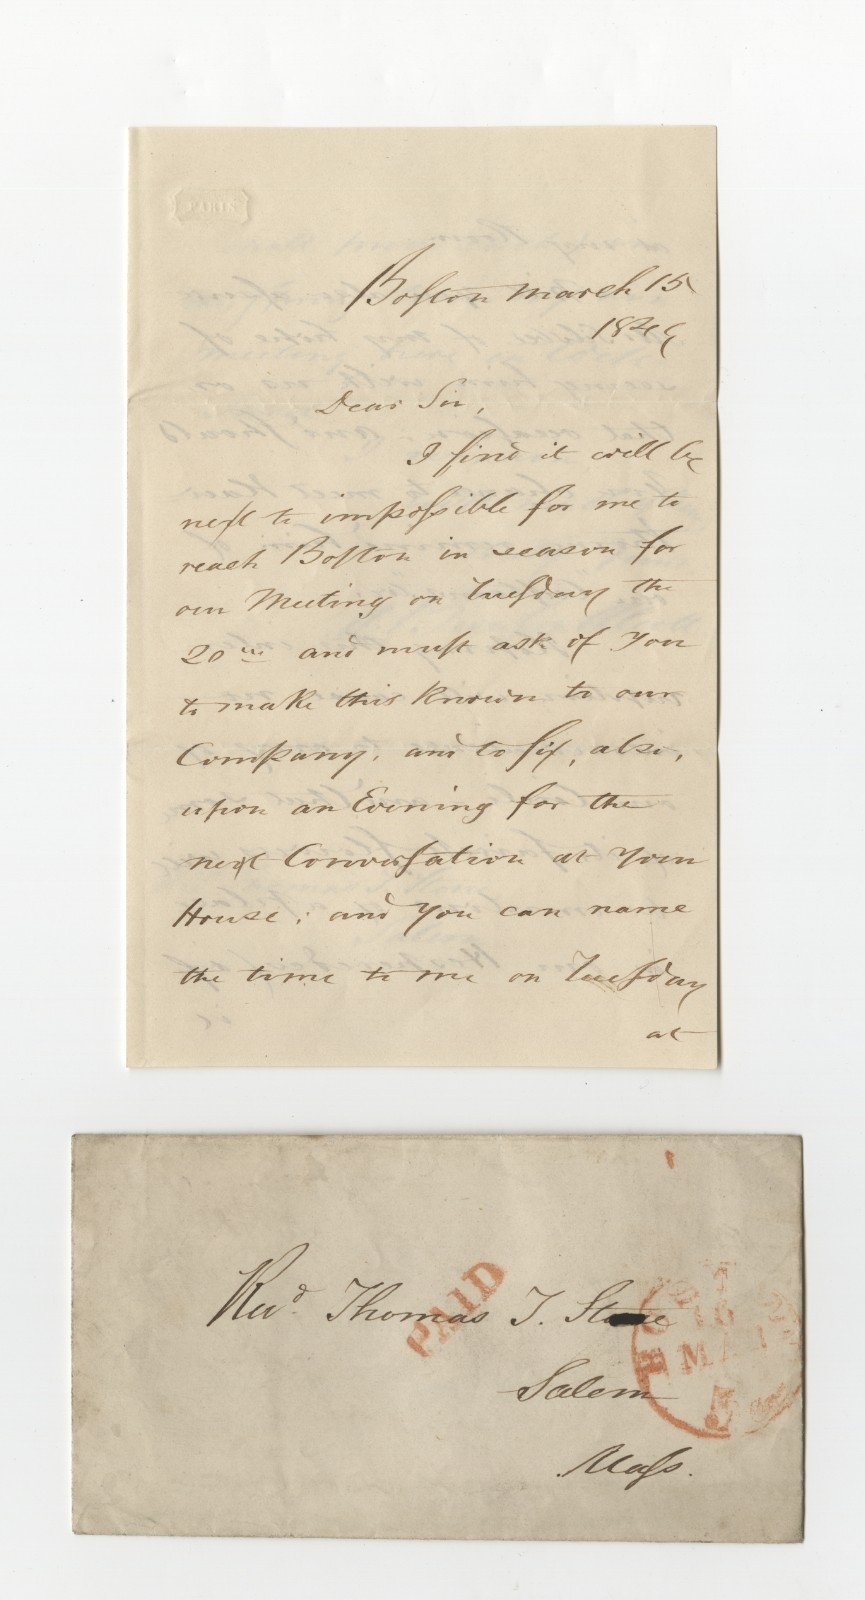 PARIS
Boston March 15
1849
Dear Sir,
I find it will be
next to impossible for me to
reach Boston in season for
our Meeting on Tuesday the
20th and must ask of you
to make this known to our
Company, and to fix, also,
upon an Evening for the
next Conversation at Your
House; and You can name
the time to me on Tuesday
at
Revd. Thomas T. Stone
Salem
Mass.
PAID
BOSTON
MAR
5